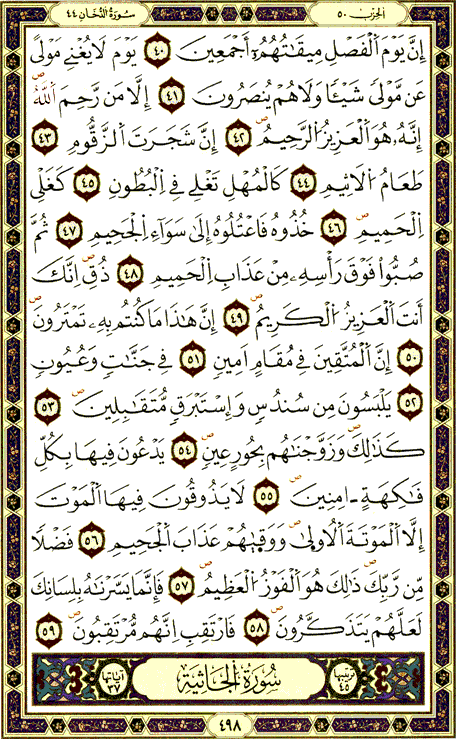 الحزب ٥٠
سورة الدخان ٤٤
إِنَّ يَوْمَ اَلْفَصْلِ مِيقَٰتُهُمُۥٓ أَجْمَعِينَ ٤٠ يَوْمَ لَا يُغْنِے مَوْلىً
عَن مَّوْلىً شَيْـٔاً وَلَا هُمْ يُنصَرُونَ ٤١ إِلَّا مَن رَّحِمَ اَللَّهُ
إِنَّهُۥ هُوَ اَلْعَزِيزُ اُلرَّحِيمُ ٤٢ إِنَّ شَجَرَتَ اَلزَّقُّومِ ٤٣
طَعَامُ اُلَاثِيمِ ٤٤ كَالْمُهْلِ تَغْلِے فِے اِلْبُطُونِ ٤٥ كَغَلْىِ
اِلْحَمِيمِ ٤٦ خُذُوهُ فَاعْتُلُوهُ إِلَىٰ سَوَآءِ اِلْجَحِيمِ ٤٧ ثُمَّ
صُبُّواْ فَوْقَ رَأْسِهِۦ مِنْ عَذَابِ اِلْحَمِيمِ ٤٨ ذُقِ اِنَّكَ
أَنتَ اَلْعَزِيزُ اُلْكَرِيمُ ٤٩ إِنَّ هَٰذَا مَا كُنتُم بِهِۦ تَمْتَرُونَ
٥٠ إِنَّ اَلْمُتَّقِينَ فِے مُقَامٍ اَمِينٍ ٥١ فِے جَنَّٰتٍ وَعُيُونٍ
٥٢ يَلْبَسُونَ مِن سُندُسٍ وَإِسْتَبْرَقٍ مُّتَقَٰبِلِينَ ٥٣
كَذَٰلِكَ وَزَوَّجْنَٰهُم بِحُورٍ عِينٍ ٥٤ يَدْعُونَ فِيهَا بِكُلِّ
فَٰكِهَةٍ ـ امِنِينَ ٥٥ لَا يَذُوقُونَ فِيهَا اَلْمَوْتَ
إِلَّا اَلْمَوْتَةَ اَلُاولَىٰ وَوَقَىٰهُمْ عَذَابَ اَلْجَحِيمِ ٥٦ فَضْلًا
مِّن رَّبِّكَ ذَٰلِكَ هُوَ اَلْفَوْزُ اُلْعَظِيمُ ٥٧ فَإِنَّمَا يَسَّرْنَٰهُ بِلِسَانِكَ
لَعَلَّهُمْ يَتَذَكَّرُونَ ٥٨ فَارْتَقِبِ اِنَّهُم مُّرْتَقِبُونَ ٥٩
ترتيبها ٤٥ سُورَةُ الجَاثِيَة آياتها ٣٧
٤٩٨